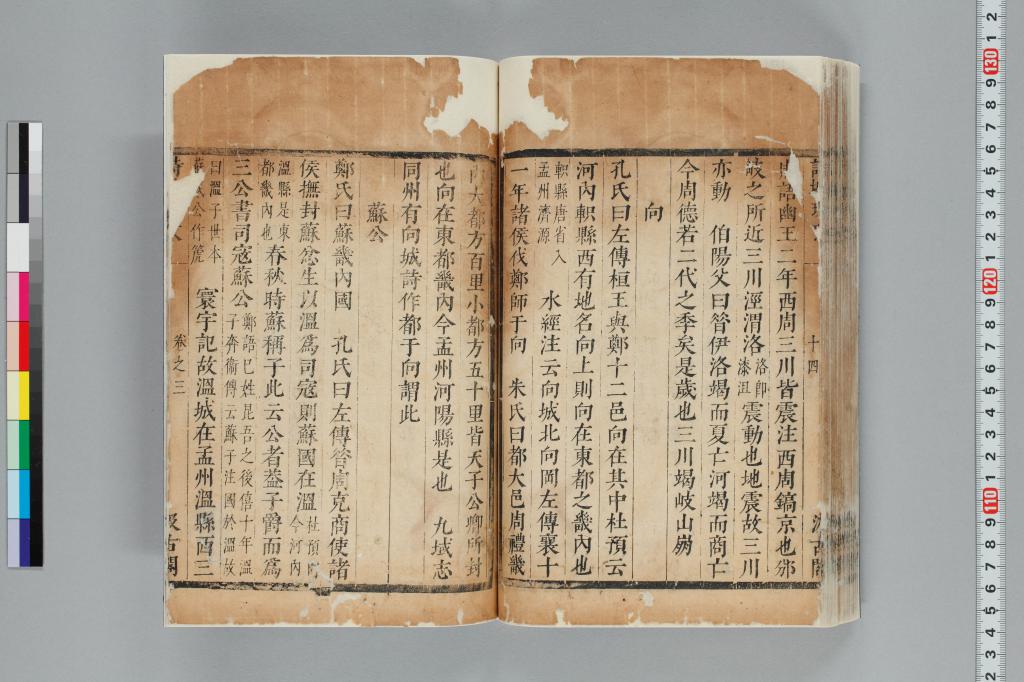 語幽王二年西周三川皆震注西周鎬京也邠
岐之所近三川涇渭洛洛即漆沮震動也地震故三川
亦動　伯陽父曰昔伊洛竭而夏亡河竭而商亡
今周德若二代之季矣是歲也三川竭岐山崩
向
孔氏曰左傳桓王與鄭十二邑向在其中杜預云
河內軹縣西有地名向上則向在東都之畿內也
軹縣唐省入孟州濟源　水經注云向城北向岡左傳襄十
一年諸侯伐鄭師于向　朱氏曰都大邑周禮畿
內大都方百里小都方五十里皆天子公卿所封
也向在東都畿內今孟州河陽縣是也　九域志
同州有向城詩作都于向謂此
蘇公
鄭氏曰蘇畿內國　孔氏曰左傳昔周克商使諸
侯撫封蘇忿生以溫為司寇則蘇國在溫杜預曰今河內
溫縣是東都畿內也春秋時蘇稱子此云公者蓋子爵而為
三公書司寇蘇公鄭語己姓昆吾之後僖十年溫子奔衛傳云蘇子注國於溫故
曰溫子世本蘇公作箎　寰宇記故溫城在孟州溫縣西三
十四
卷之三
汲古閣